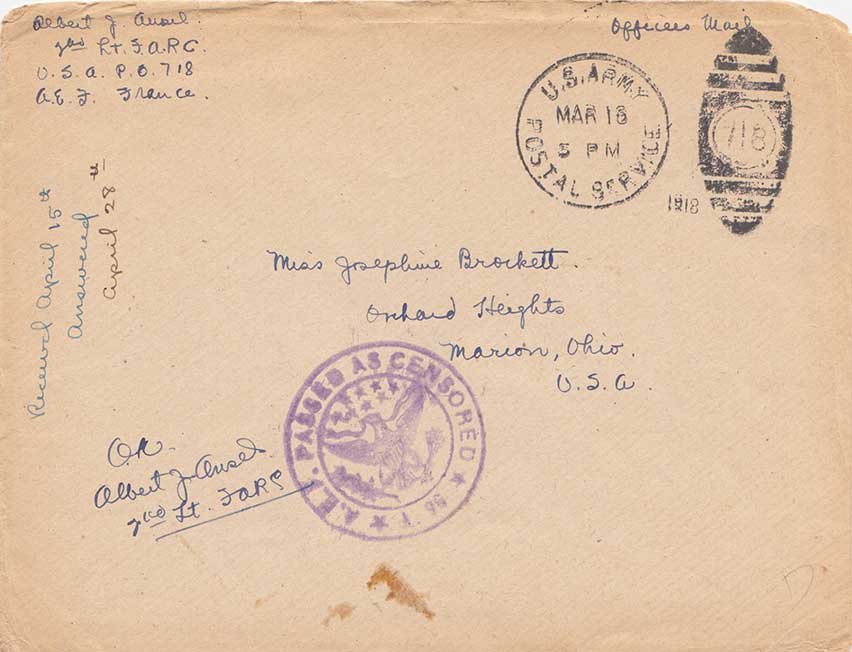 Albert J. Ansel.
2nd Lt. F.A.R.C.
U.S.A. P.O. 718
A.E.F. France.
Officers Mail
U.S. ARMY
MAR 16
5 PM
POSTAL SERVICE
718
1918
Received April 15th
Answered
April 28th
Miss Josephine Brockett.
Orchard Heights
Marion, Ohio.
U.S.A.
A.E.F. PASSED AS CENSORED
OK
Albert J. Ansel
2nd Lt. FARC